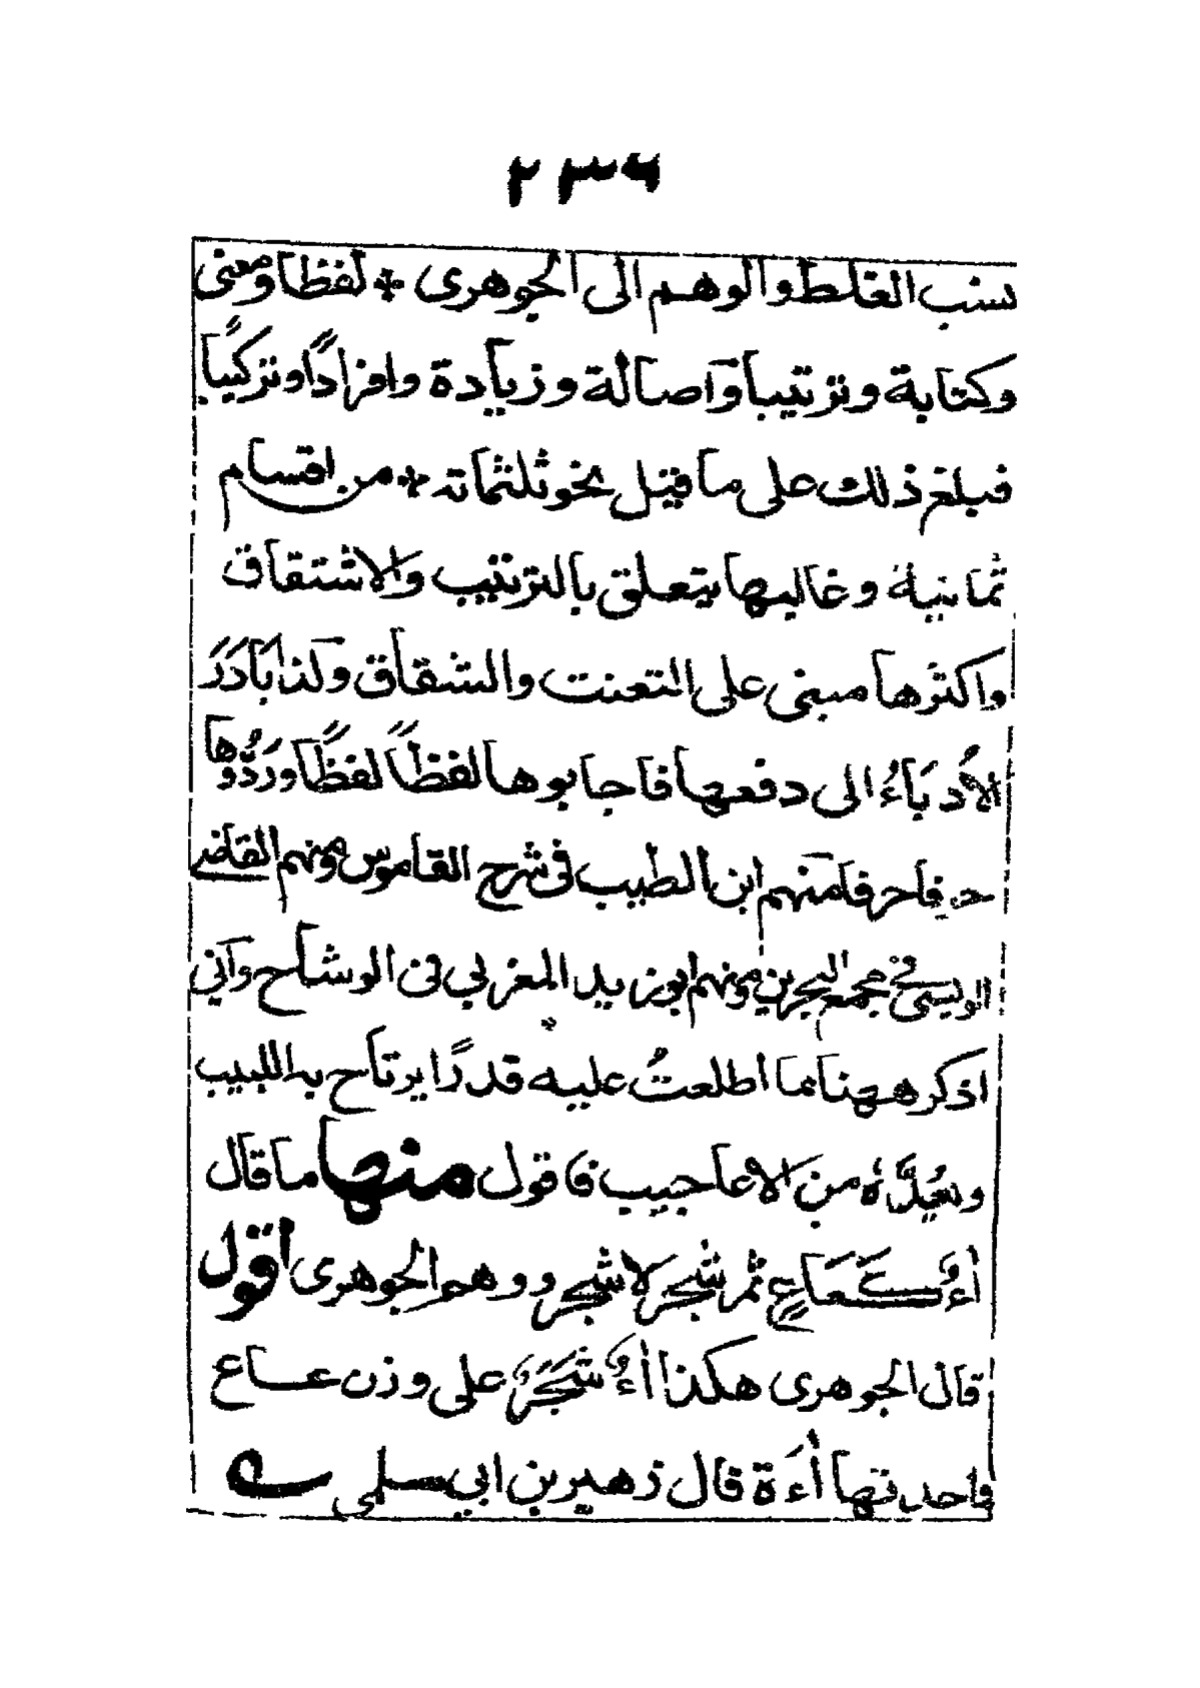 ٢٣٦
نسب الغلط والوهم الى الجوهرى * لفظا ومعنى
وكتابة وترتيبا وآصالة وزيادة وافرادًا وتركيبًا
فبلغ ذلك على ما قيل نحو ثلثمائة * من اقسام
ثمانية وغاليها يتعلق بالترتيب والاشتقاق
واكثرها مبنى على التعنت والشقاق ولذا بَادَرَ
الأُدبَاءُ الى دفعها فاجابوها لفظاً لفظًا ورَدُّوها
حرفا حرفا منهم ابن الطيب فى شرح القاموس ومنهم القاضى
الويسى فى مجمع البحرين ومنهم ابو زيد المغربي فى الوشاح وآنى
اذكر ههنا مما أطلعتُ عليه قدرًا يرتاح به اللبيب
ويعُدَّهُ من الاعاجيب فاقول منها ما قال
أءٌ كَعَاعٍ ثمر شجر لا شجر ووهم الجوهرى اقول
قال الجوهرى هكذا أءٌ شَجَرٌ على وزن عاع
واحدتها أءَة قال زهير بن ابي سلمى